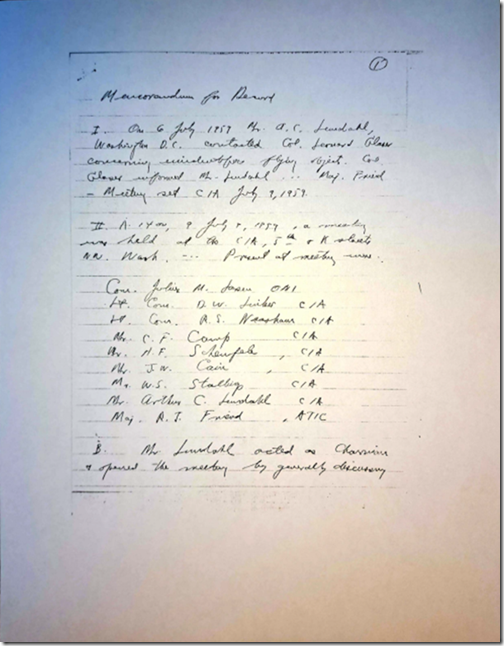 1
Memorandum for Record
I. On 6 July 1959 Mr. A.C. Lundahl,
Washington D.C. contacted Col. Leonard Glaser
concerning unidentified flying object. Col.
Glaser informed Mr. Lundahl ... Maj. Friend
- Meeting set CIA July 9, 1959.
II. A. 1400, 9 July, 1959, a meeting
was held at the CIA, 5th & K streets
N.W. Wash. ... Present at meeting were.
Com. Julius M. Larsen ONI
Lt. Com. D.W. CIA
Lt. Com. R.S. Neasham CIA
Mr. C.F. Camp CIA
Mr. H.F. Scheufele, CIA
Mr. J.W. Cain, CIA
Mr. W.S. Stallings CIA
Mr. Arthur C. Lundahl CIA
Maj. R.J. Friend, ATIC
B. Mr Lundahl acted as Chairman
& opened the meeting by generally discussing